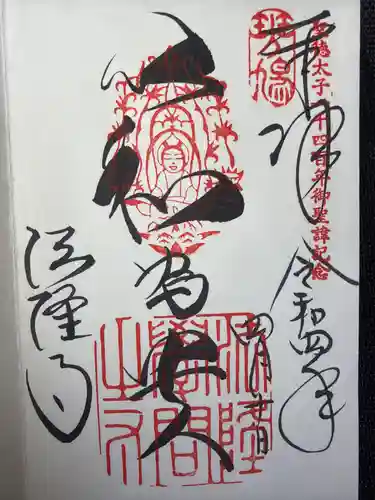 聖徳太子一千四百年御聖諱記念
斑鳩
奉拝
令和四年
四月廿日
以和為貴
法隆寺
法隆学問之寺